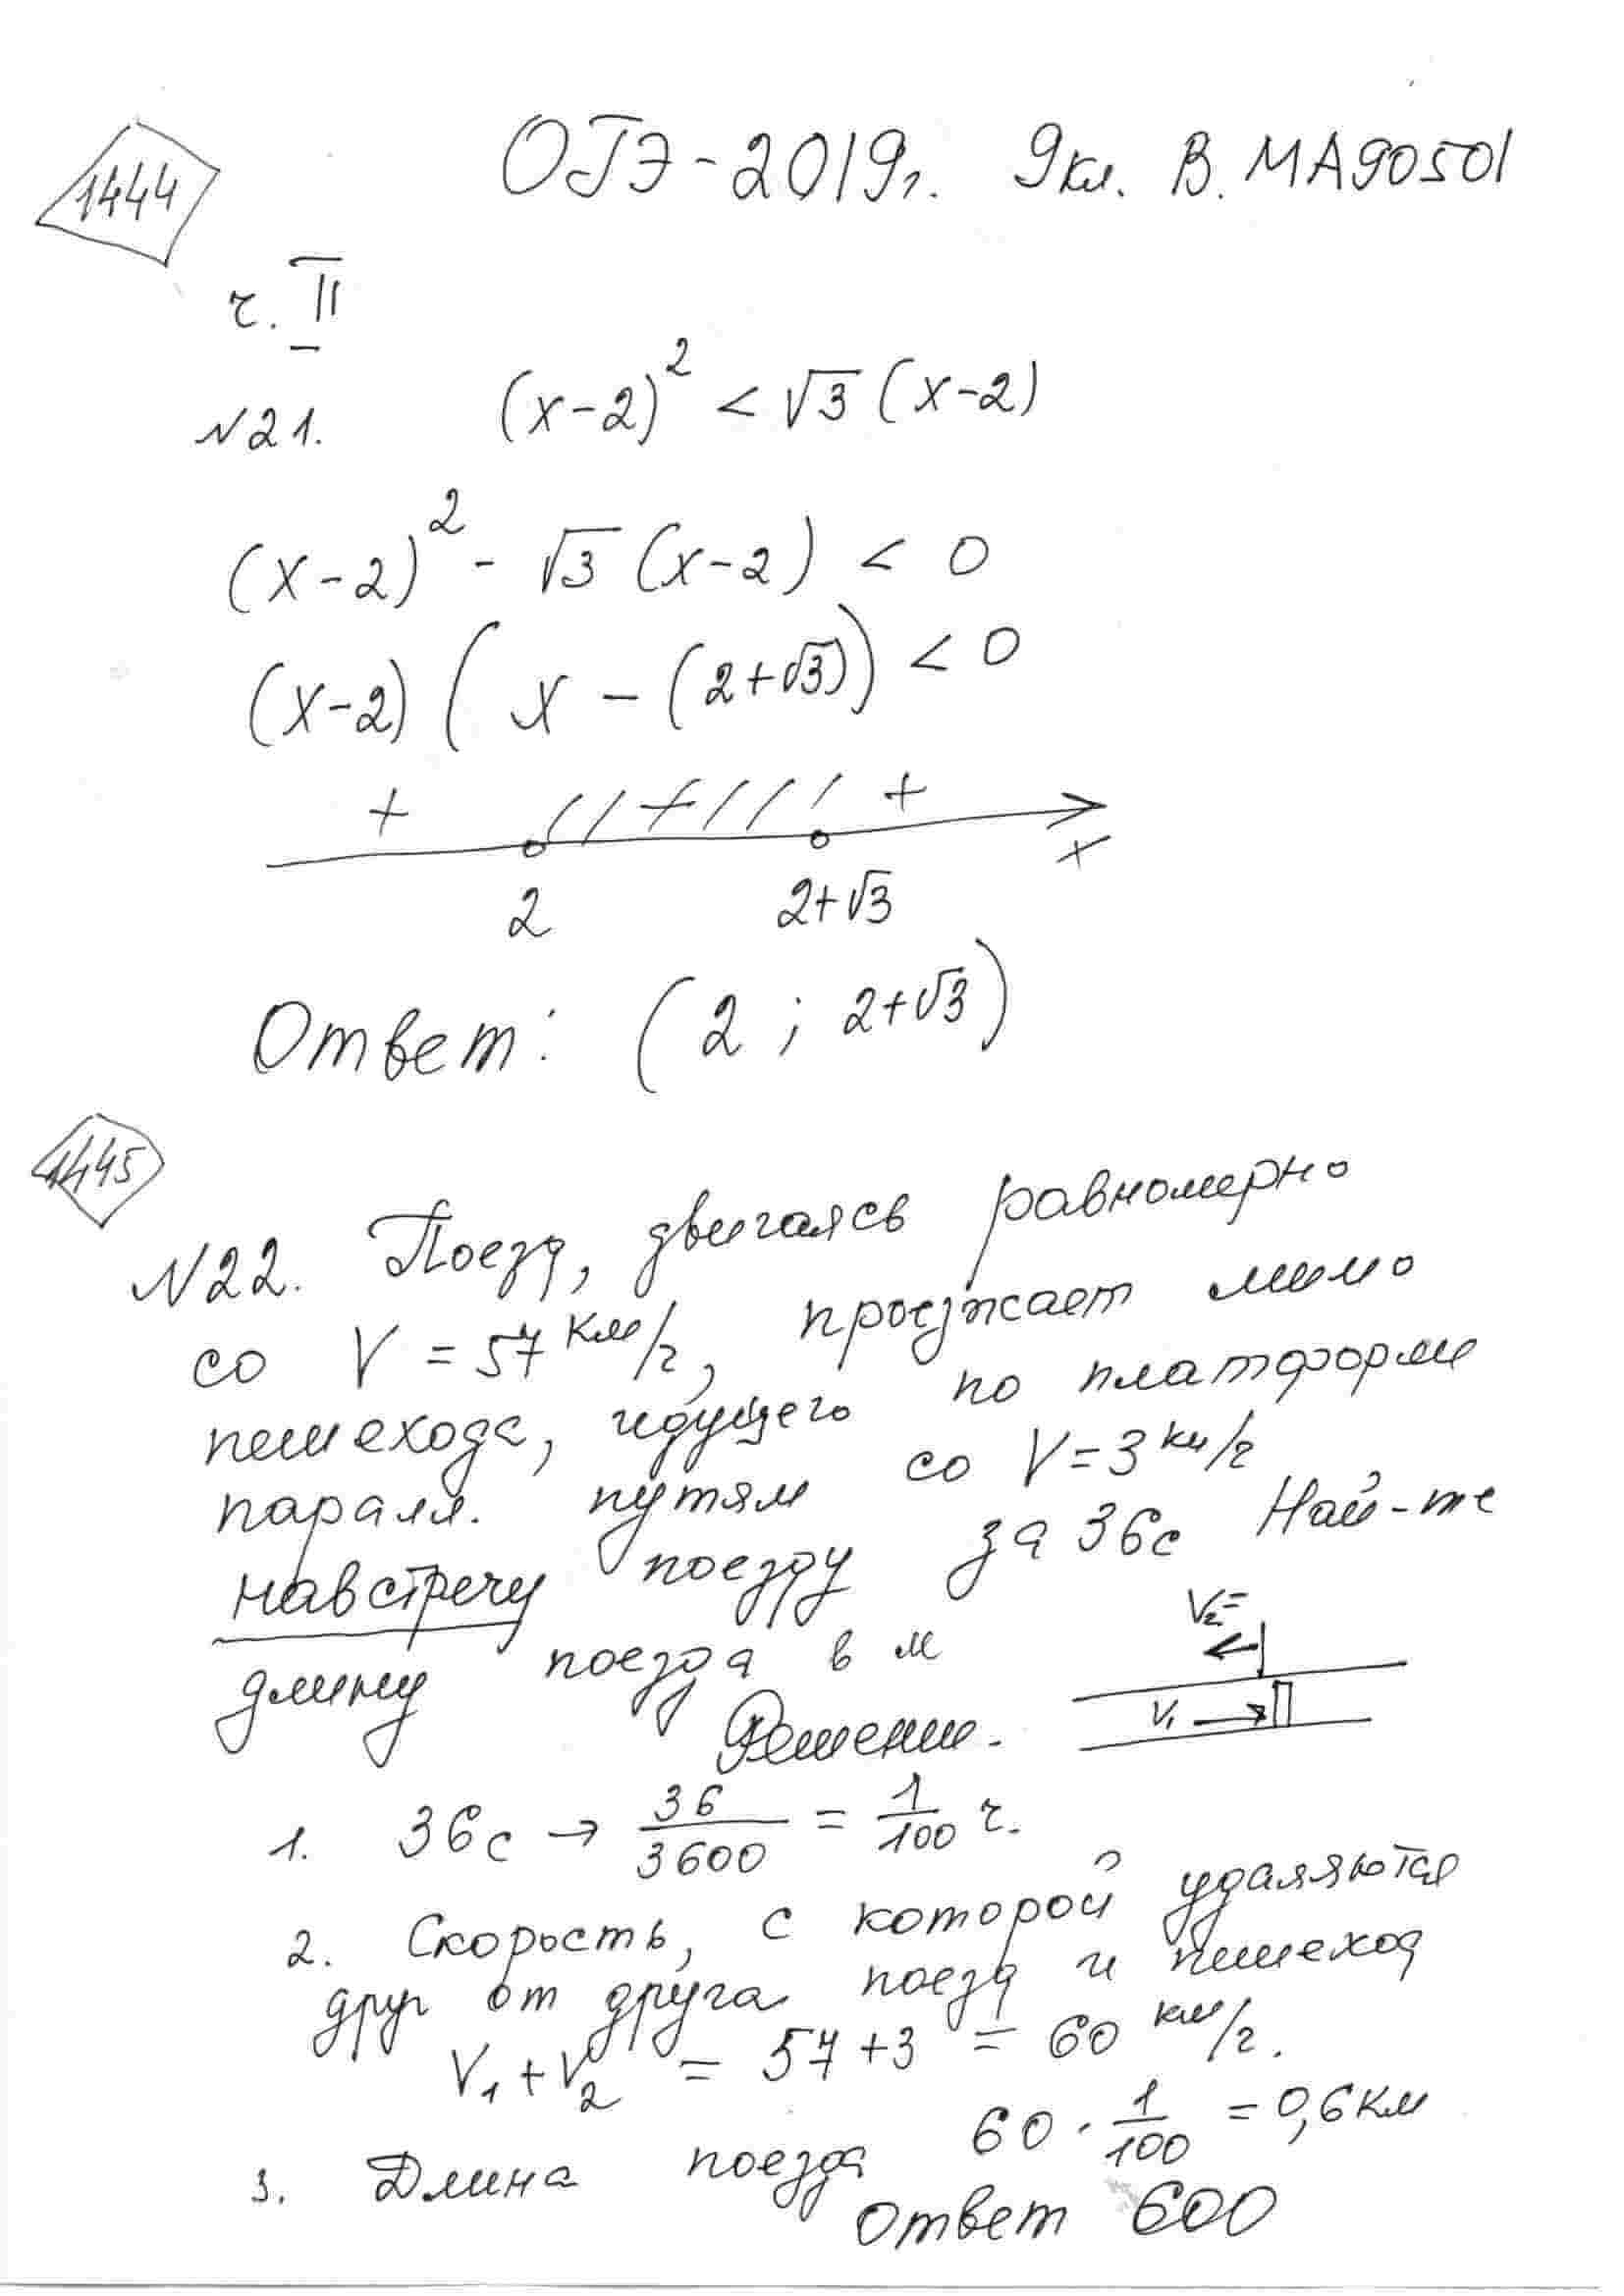 1444
ОГЭ-2019г. 9кл. В. МА90501
ч. II
№21. (x-2)² < √3 (x-2)
(x-2)² - √3 (x-2) < 0
(x-2) ( x - (2+√3)) < 0
+ - +
x
2 2+√3
Ответ: (2 ; 2+√3)
1445
№22. Поезд, двигаясь равномерно
со V = 57 км/ч, проезжает мимо
пешехода, идущего по платформе
паралл. путям со V = 3 км/ч
навстречу поезду за 36с Най-те
длину поезда в м
V₂=
V₁
Решение.
1. 36с → 36/3600 = 1/100 ч.
2. Скорость, с которой удаляются
друг от друга поезд и пешеход
V₁ + V₂ = 57 + 3 = 60 км/ч.
3. Длина поезда 60 · 1/100 = 0,6 км
Ответ 600